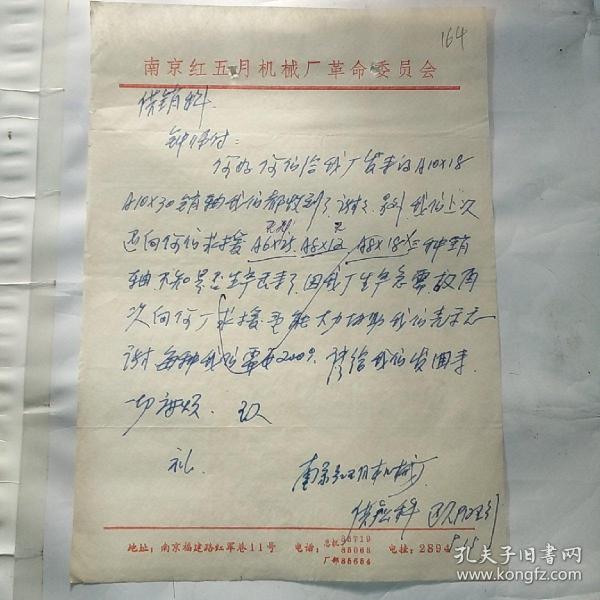 164
南京红五月机械厂革命委员会
供销科
钟师付：
你好 你们给我厂发来的A10×18
A10×30销轴我们都收到了，谢谢，另外我们上次
还向你们求援A6×25 A8×12 A8×18三种销
轴不知是否生产出来了，因我厂生产急需，故再
次向你厂求援，
谢 每种我们需要200只，请给我们发回来
一切麻烦。致
礼
南京红五月机械厂
供应科
地址：南京福建路红军巷11号 电话：总机 85719
85068
厂部85684
电挂：289
孔夫子旧书网
www.kongfz.com